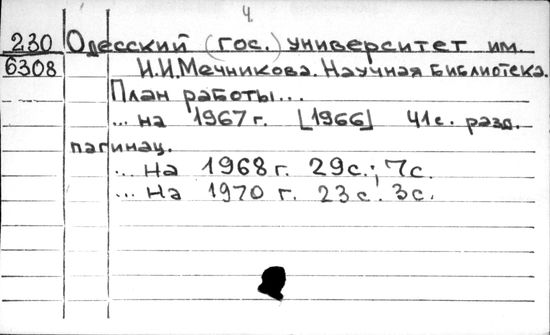 4.
230 Одесский (гос.) университет им.
6308 И.И.Мечникова. Научная библиотека.
План работы...
... на 1967 г. [1966] 41 с. разд.
пагинац.
... на 1968 г. 29 с.; 7 с.
... на 1970 г. 23 с. 3 с.